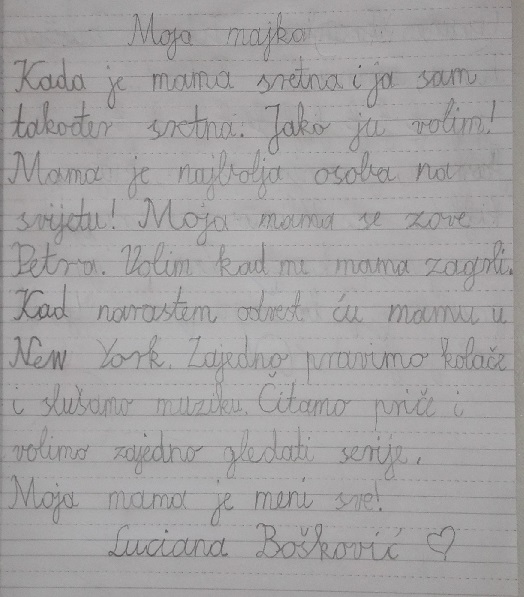 Moja majka
Kada je mama sretna i ja sam
također sretna. Jako ju volim!
Mama je najbolja osoba na
svijetu! Moja mama se zove
Petra. Volim kad me mama zagrli.
Kad narastem odvest ću mamu u
New York. Zajedno pravimo kolače
i slušamo muziku. Čitamo priče i
volimo zajedno gledati serije.
Moja mama je meni sve!
Luciana Bošković ♡